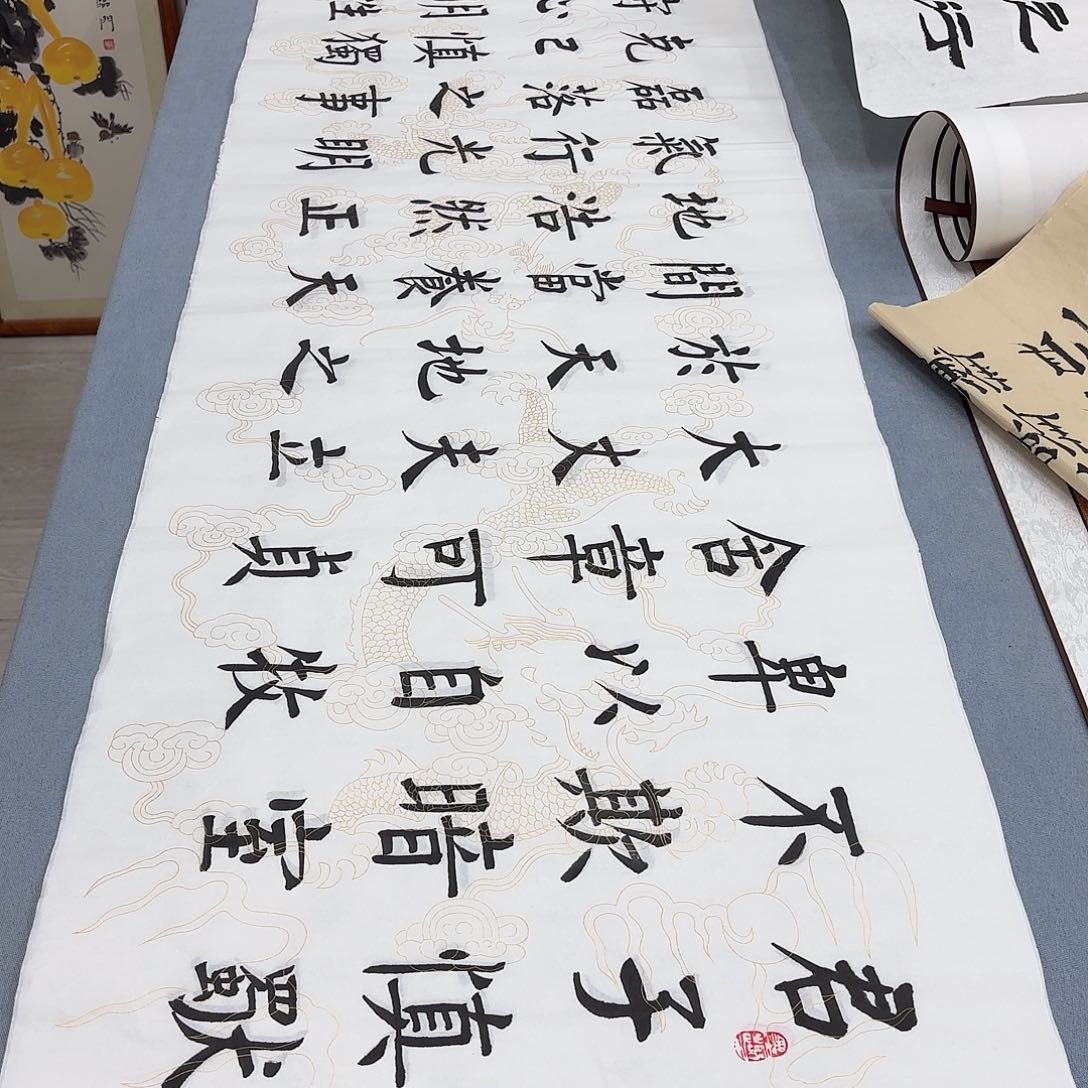 君子慎獨
不欺暗室
卑以自牧
含章可貞
大丈夫立
於天地之
間當養天
地浩然正
氣行光明
磊落之事
克己慎獨
守心明